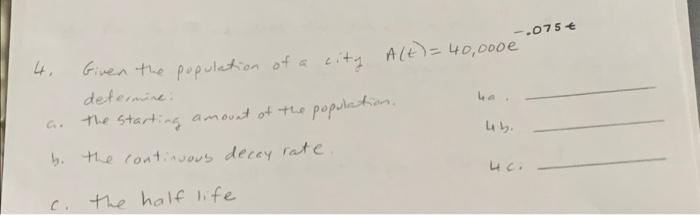 4. Given the population of a city A(t) = 40,000e^-.075t
determine:
a. the starting amount of the population. 4a.
b. the continuous decay rate. 4b.
c. the half life 4c.